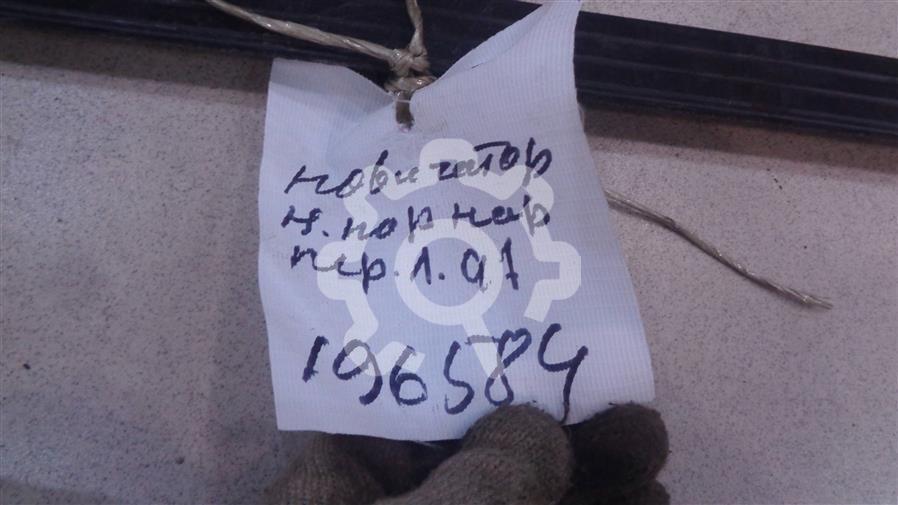 новигатор
н. нар нар
пер. 1. 97
196584